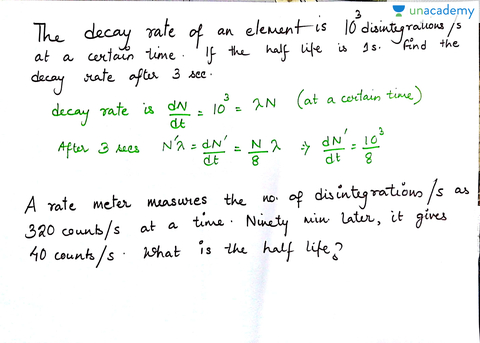 unacademy
The decay rate of an element is 10³ disintegrations/s
at a certain time. If the half life is 1s. find the
decay rate after 3 sec.
decay rate is dN/dt = 10³ = λN (at a certain time)
After 3 secs N'λ = dN'/dt = N/8 λ ⇒ dN'/dt = 10³/8
A rate meter measures the no. of disintegrations/s as
320 counts/s at a time. Ninety min later, it gives
40 counts/s. What is the half life?